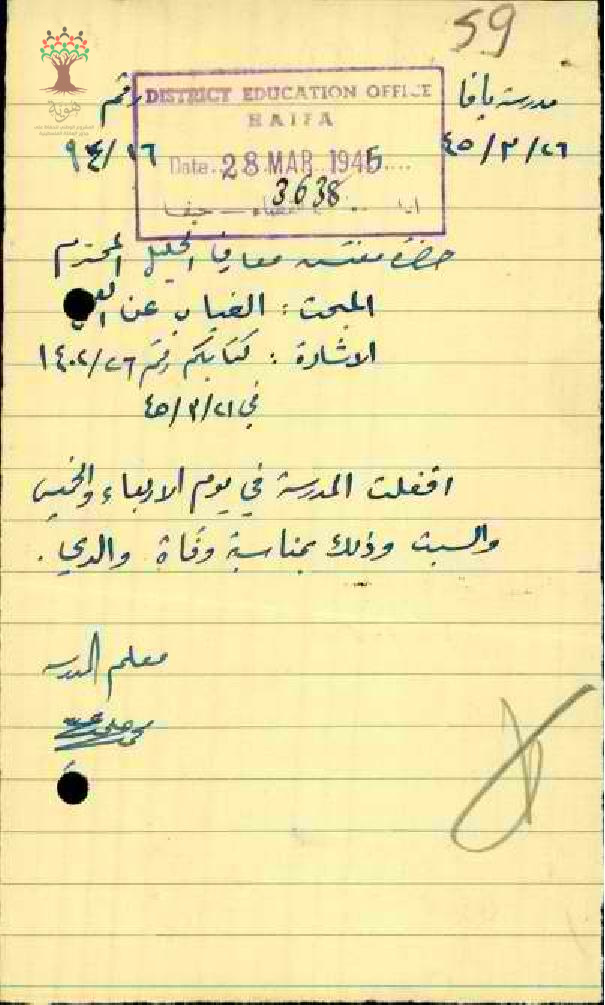 59
مدرسة يافا
رقم
٢٦/٣/٤٥
٩٤/١٦
DISTRICT EDUCATION OFFICE
HAIFA
Date. 28 MAR 1945
3638
حضرة مفتش معارف الجليل المحترم
المبحث : الغياب عن
الاشارة : كتابكم رقم ١٤٠٢/٢٦
في ٢١/٣/٤٥
اقفلت المدرسة في يوم الاربعاء والخميس
والسبت وذلك بمناسبة وفاة والدي .
معلم المدرسة
هوية